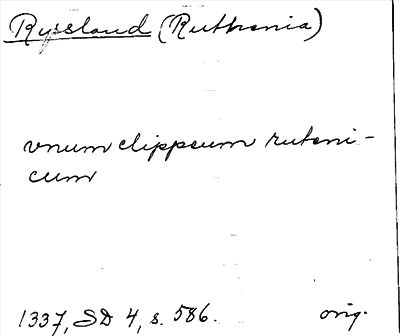 Ryssland (Ruthenia)
vnum clippeum ruteni-
cum
1337, SD 4, s. 586. orig.